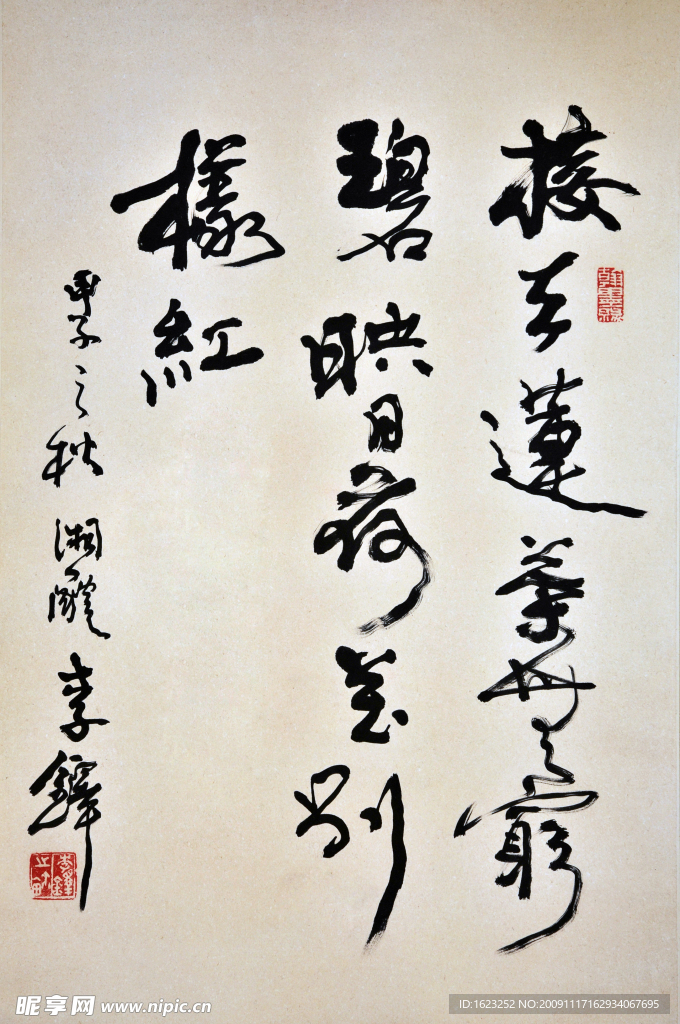 接天蓮葉無窮
碧映日荷花別
樣紅
甲子之秋湘醴李鐸
翰墨緣
昵享网 www.nipic.cn
ID:1623252 NO:20091117162934067695